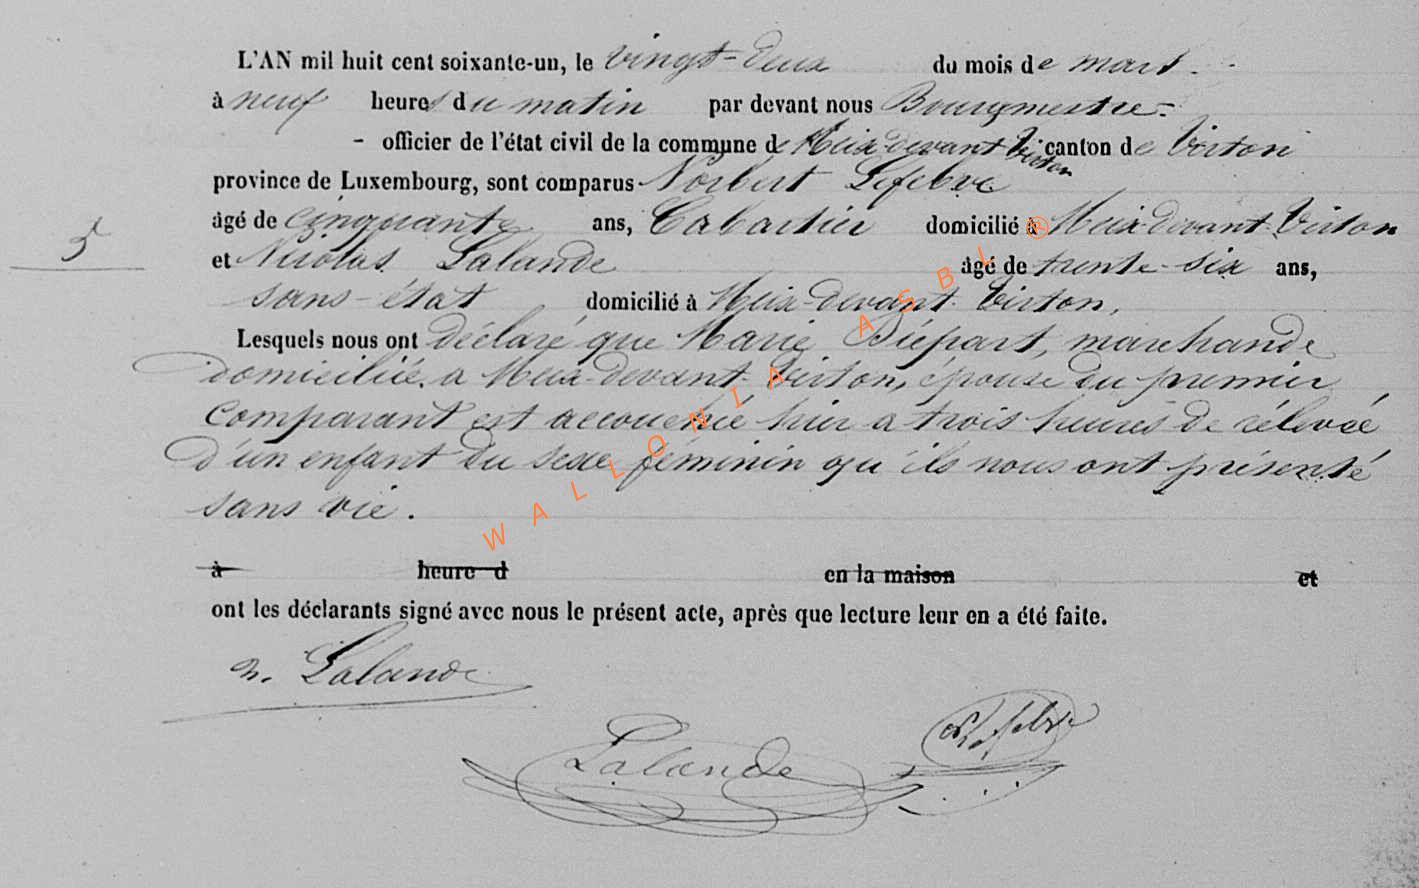 L'AN mil huit cent soixante-un, le vingt-deux du mois de mars.
à neuf heures du matin par devant nous Bourgmestre
- officier de l'état civil de la commune de Meix-devant Virton canton de Virton
province de Luxembourg, sont comparus Norbert Lefebvre
âgé de cinquante ans, Cabartier domicilié à Meix-devant-Virton
5
et Nicolas Lalande âgé de trente-six ans,
sans-état domicilié à Meix-devant Virton,
Lesquels nous ont déclaré que Marie Piépart, marchande
domiciliée à Meix-devant-Virton, épouse du premier
comparant est accouchée hier à trois heures de rélevée
d'un enfant du sexe féminin qu'ils nous ont présenté
sans vie.
WALLONIA ASBL ®
à heure d en la maison et
ont les déclarants signé avec nous le présent acte, après que lecture leur en a été faite.
n. Lalande
Lalande
Lefebvre